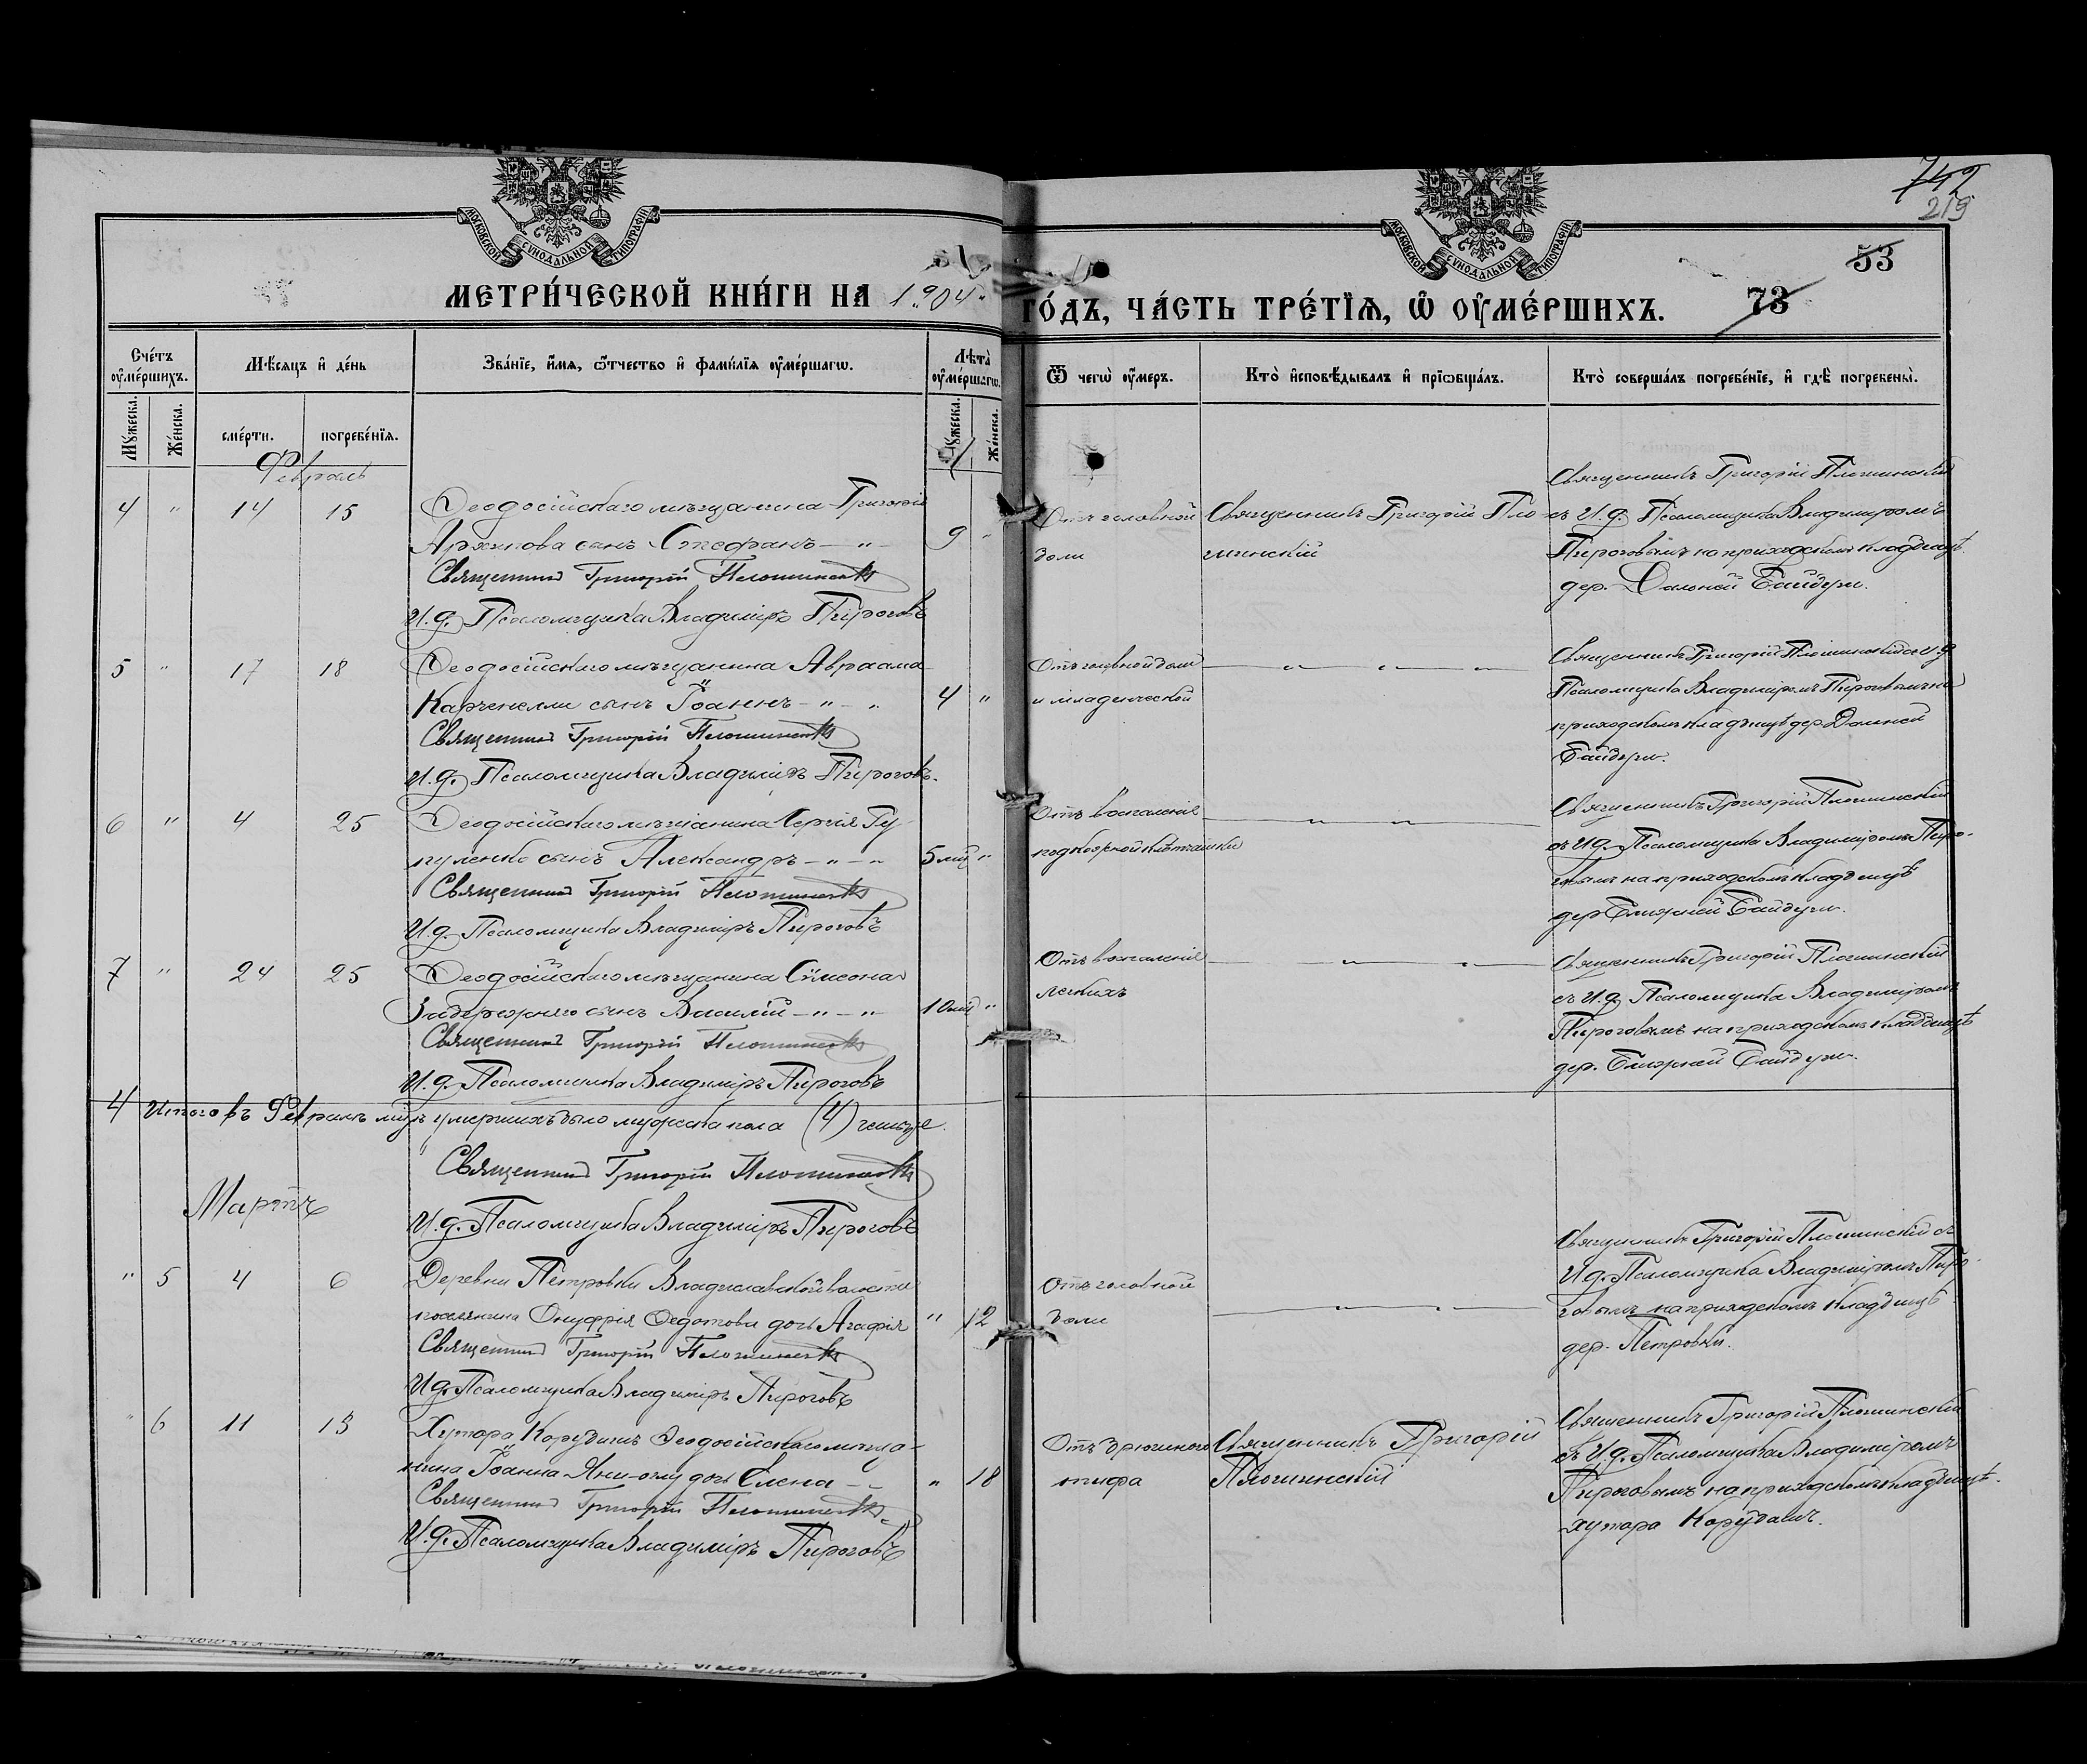 742
219
МОСКОВСКОЙ СѴНОДАЛЬНОЙ ТИПОГРАФІИ
МОСКОВСКОЙ СѴНОДАЛЬНОЙ ТИПОГРАФІИ
53
МЕТРИ́ЧЕСКОЙ КНИ́ГИ НА 1904.
ГО́ДЪ, ЧА́СТЬ ТРЕ́ТЇѦ, Ѡ҆ ОУ҆МЕ́РШИХЪ.
73
Счє́тъ оу҆мє́ршихъ.
Мѣ́сѧцъ и҆ дє́нь
Зва́нїе, и҆́мѧ, ѻ҆́тчество и҆ фами́лїѧ оу҆мє́ршагѡ.
Лѣта̀ оу҆мє́ршагѡ.
Ѿ чегѡ̀ оу҆́меръ.
Кто̀ и҆сповѣ́дывалъ и҆ прїѡбща́лъ.
Кто̀ соверша́лъ погребе́нїе, и҆ гдѣ̀ погребены̀.
Мꙋ́жеска.
Же́нска.
сме́рти.
погребе́нїѧ.
Мꙋ́жеска.
Же́нска.
Февраль
4 " 14 15
Ѳеодосійскаго мѣщанина Григорія
Архипова сынъ Стефанъ — " —
9 "
Священникъ Григорій Плошинскій
И.д. Псаломщика Владиміръ Пироговъ
Отъ головной
боли
Священникъ Григорій Пло-
шинскій
Священникъ Григорій Плошинскій
съ И.д. Псаломщика Владиміромъ
Пироговымъ на приходскомъ кладбищѣ
дер. Дальной Байбуги.
5 " 17 18
Ѳеодосійскаго мѣщанина Авраама
сынъ Іоаннъ — " — "
4 "
Священникъ Григорій Плошинскій
И.д. Псаломщика Владиміръ Пироговъ.
Отъ головной боли
и младенческой
— " — " —
Священникъ Григорій Плошинскій съ И.д.
Псаломщика Владиміромъ Пироговымъ на
приходскомъ кладбищѣ дер. Дальней
Байбуги.
6 " 4 25
Ѳеодосійскаго мѣщанина Сергія Гу-
сынъ Александръ — " — "
5 мѣц "
Священникъ Григорій Плошинскій
И.д. Псаломщика Владиміръ Пироговъ
Отъ воспаленія
подкожной клѣтчатки
— " — " —
Священникъ Григорій Плошинскій
съ И.д. Псаломщика Владиміромъ Пиро-
говымъ на приходскомъ кладбищѣ
дер Ближней Байбуги.
7 " 24 25
Ѳеодосійскаго мѣщанина Сѵмеона
Забережняго сынъ Василій — " — "
10 мѣц "
Священникъ Григорій Плошинскій
И.д. Псаломщика Владиміръ Пироговъ
Отъ воспаленія
легкихъ
— " — " —
Священникъ Григорій Плошинскій
съ И.д. Псаломщика Владиміромъ
Пироговымъ на приходскомъ кладбищѣ
дер. Ближней Байбуги.
4 Итого въ Февралѣ мцѣ умершихъ было мужеска пола (4) четыре.
Священникъ Григорій Плошинскій
И.д. Псаломщика Владиміръ Пироговъ
Мартъ
" 5 4 6
Деревни Петровки Владиславской волости
поселянина Онуфрія Ѳедотова дочь Агафія
" 12
Священникъ Григорій Плошинскій
И.д. Псаломщика Владиміръ Пироговъ
Отъ головной
боли
— " — " —
Священникъ Григорій Плошинскій съ
И.д. Псаломщика Владиміромъ Пиро-
говымъ на приходскомъ кладбищѣ
дер. Петровки.
" 6 11 13
Хутора Ѳеодосійскаго мѣща-
нина Іоанна Яни-оглу дочь Елена — "
" 18
Священникъ Григорій Плошинскій
И.д. Псаломщика Владиміръ Пироговъ
Отъ брюшного
тифа
Священникъ Григорій
Плошинскій
Священникъ Григорій Плошинскій
съ И.д. Псаломщика Владиміромъ
Пироговымъ на приходскомъ кладбищѣ.
хутора